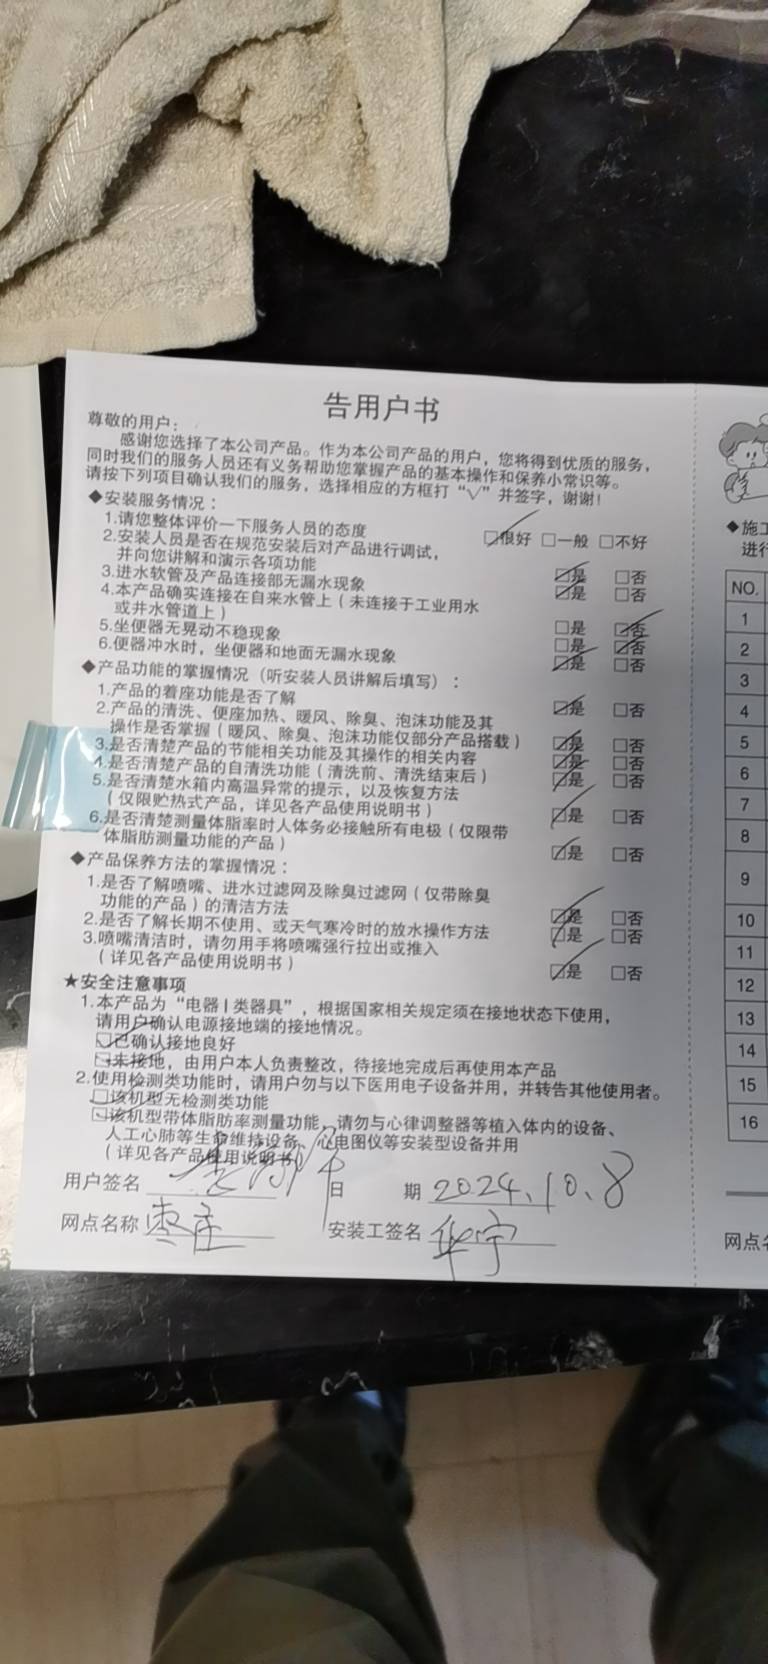 告用户书
尊敬的用户：
感谢您选择了本公司产品。作为本公司产品的用户，您将得到优质的服务，
同时我们的服务人员还有义务帮助您掌握产品的基本操作和保养小常识等。
请按下列项目确认我们的服务，选择相应的方框打“√”并签字，谢谢！
◆安装服务情况：
1.请您整体评价一下服务人员的态度 ☑很好 □一般 □不好
2.安装人员是否在规范安装后对产品进行调试，
并向您讲解和演示各项功能 ☑是 □否
3.进水软管及产品连接部无漏水现象 ☑是 □否
4.本产品确实连接在自来水管上（未连接于工业用水
或井水管道上） □是 ☑否
5.坐便器无晃动不稳现象 □是 ☑否
6.便器冲水时，坐便器和地面无漏水现象 ☑是 □否
◆产品功能的掌握情况（听安装人员讲解后填写）：
1.产品的着座功能是否了解 ☑是 □否
2.产品的清洗、便座加热、暖风、除臭、泡沫功能及其
操作是否掌握（暖风、除臭、泡沫功能仅部分产品搭载） ☑是 □否
3.是否清楚产品的节能相关功能及其操作的相关内容 ☑是 □否
4.是否清楚产品的自清洗功能（清洗前、清洗结束后） ☑是 □否
5.是否清楚水箱内高温异常的提示，以及恢复方法
（仅限贮热式产品，详见各产品使用说明书） ☑是 □否
6.是否清楚测量体脂率时人体务必接触所有电极（仅限带
体脂肪测量功能的产品） ☑是 □否
◆产品保养方法的掌握情况：
1.是否了解喷嘴、进水过滤网及除臭过滤网（仅带除臭
功能的产品）的清洁方法 ☑是 □否
2.是否了解长期不使用、或天气寒冷时的放水操作方法 ☑是 □否
3.喷嘴清洁时，请勿用手将喷嘴强行拉出或推入
（详见各产品使用说明书） ☑是 □否
★安全注意事项
1.本产品为“电器Ⅰ类器具”，根据国家相关规定须在接地状态下使用，
请用户确认电源接地端的接地情况。
☑已确认接地良好
☑未接地，由用户本人负责整改，待接地完成后再使用本产品
2.使用检测类功能时，请用户勿与以下医用电子设备并用，并转告其他使用者。
☑该机型无检测类功能
☑该机型带体脂肪率测量功能，请勿与心律调整器等植入体内的设备、
人工心肺等生命维持设备、心电图仪等安装型设备并用
（详见各产品使用说明书）
用户签名 日 期 2024.10.8
网点名称 枣庄 安装工签名 华宁
◆施工
进行
NO.
1
2
3
4
5
6
7
8
9
10
11
12
13
14
15
16
网点名